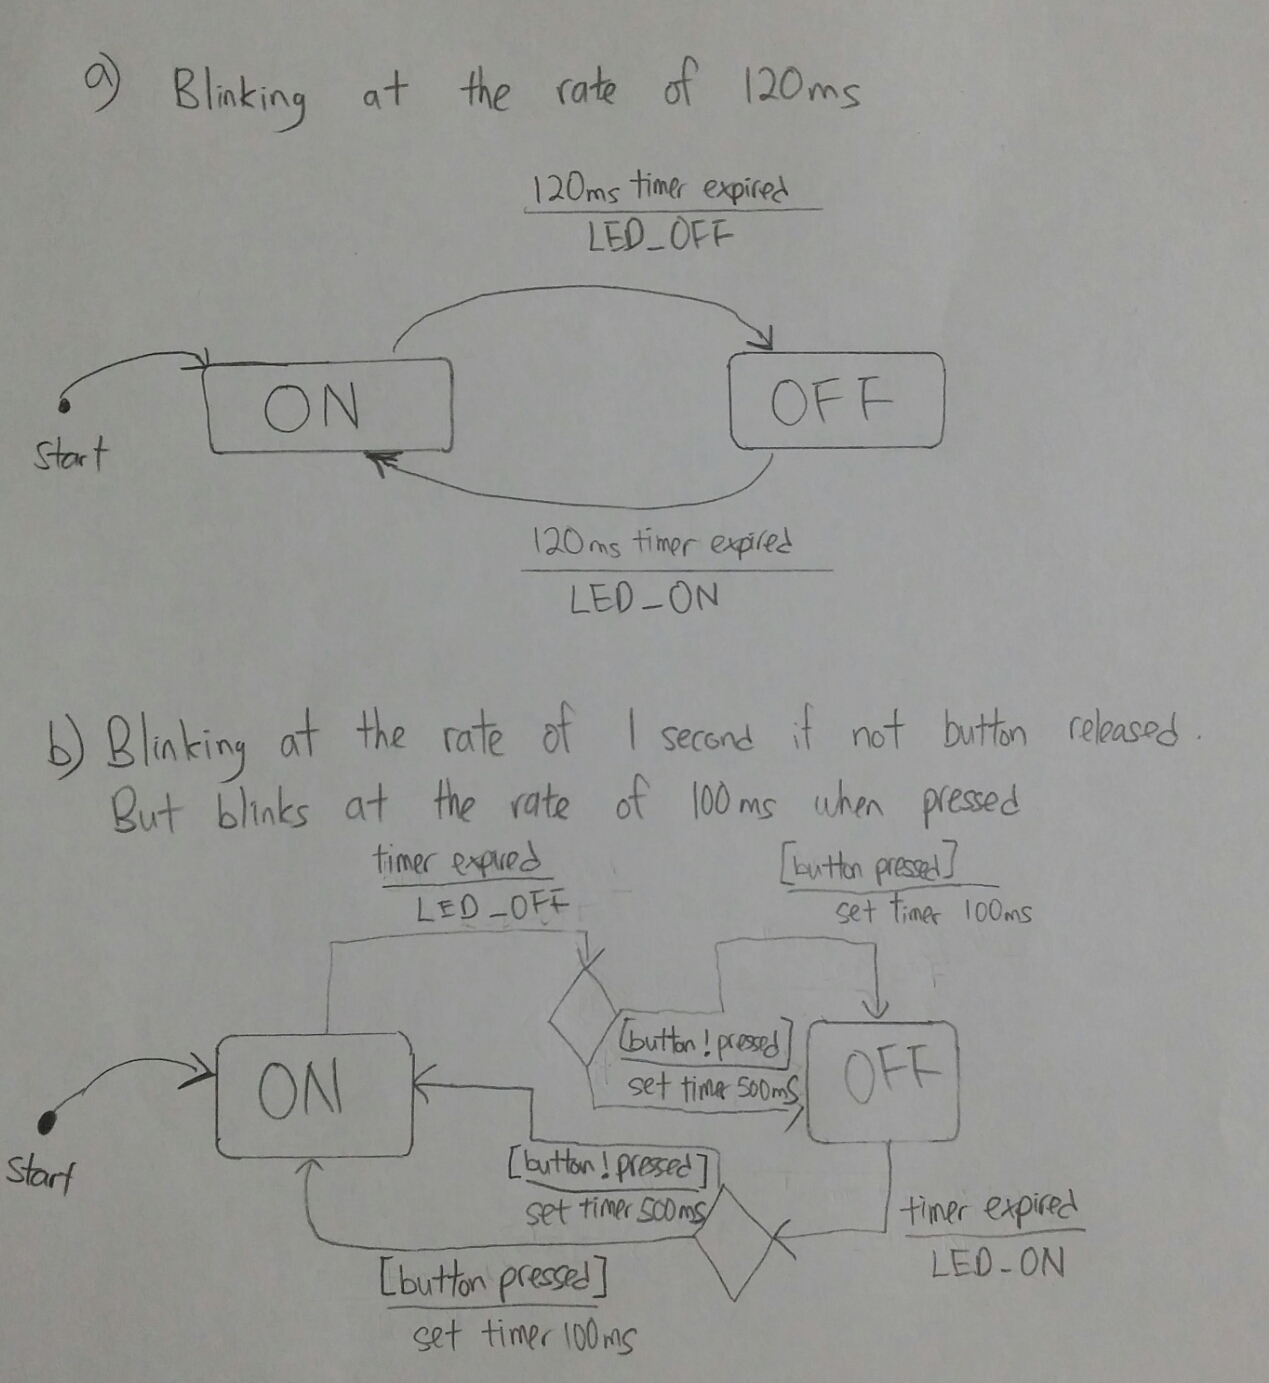 a) Blinking at the rate of 120ms
120ms timer expired
LED_OFF
ON
OFF
Start
120ms timer expired
LED_ON
b) Blinking at the rate of 1 second if not button released.
But blinks at the rate of 100ms when pressed
timer expired
LED_OFF
[button pressed]
set timer 100ms
[button!pressed]
set timer 500ms
ON
OFF
Start
[button!pressed]
set timer 500ms
timer expired
LED-ON
[button pressed]
set timer 100ms